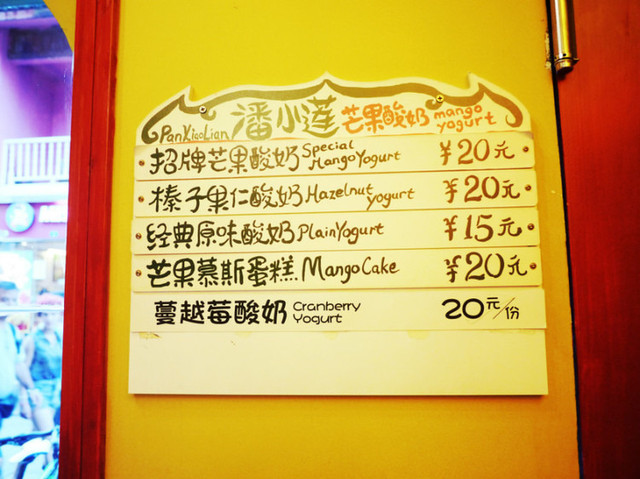 PanXiaoLian 潘小莲 芒果酸奶 mango yogurt
招牌芒果酸奶 Special Mango Yogurt ¥20元
榛子果仁酸奶 Hazelnut yogurt ¥20元
经典原味酸奶 Plain Yogurt ¥15元
芒果慕斯蛋糕 Mango Cake ¥20元
蔓越莓酸奶 Cranberry Yogurt 20元/份